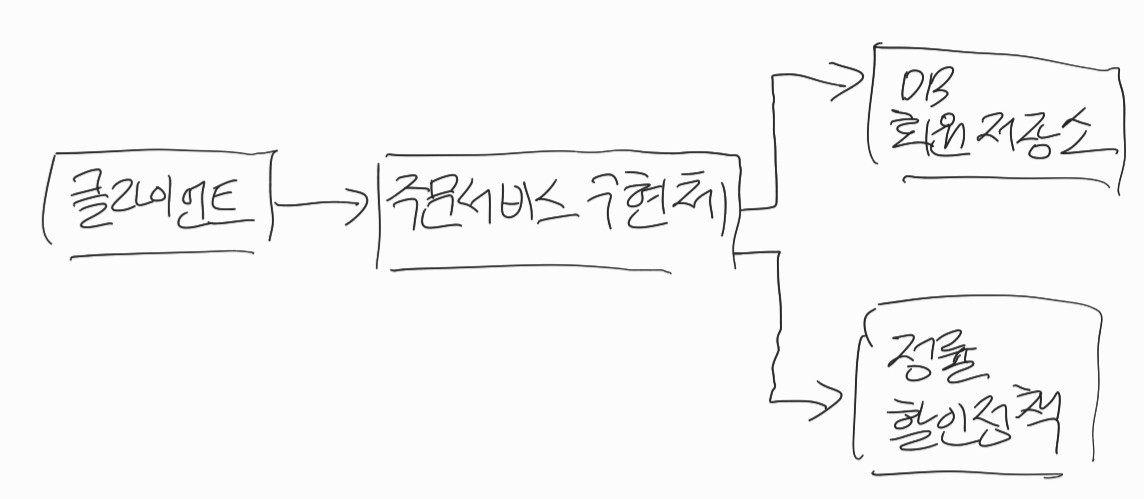 클라이언트
주문서비스 구현체
DB
회원 저장소
정률
할인정책